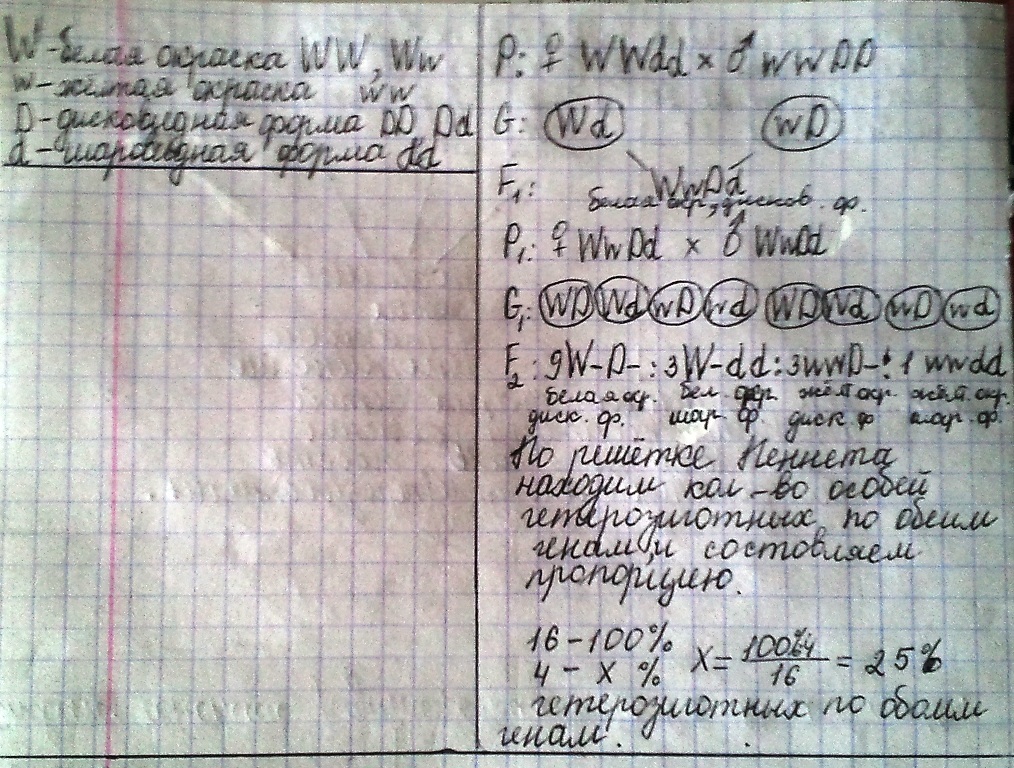 W-белая окраска WW, Ww
w-жёлтая окраска ww
D-дисковидная форма DD Dd
d-шаровидная форма dd
P: ♀ WWdd × ♂ wwDD
G: Wd wD
F₁: WwDd
белая окр., дисков. ф.
P₁: ♀ WwDd × ♂ WwDd
G₁: WD Wd wD wd WD Wd wD wd
F₂: 9W-D-:3W-dd:3wwD-:1wwdd
белая окр. бел. окр. жёлт окр. жёлт. окр.
диск. ф. шар. ф. диск. ф шар. ф.
По решётке Пеннета
находим кол-во особей
гетерозиготных по обеим
генам и составляем
пропорцию.
16-100%
4 - x %
X= 100%·4 / 16 = 25%
гетерозиготных по обоим
генам.